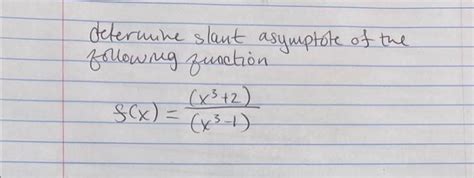 determine slant asymptote of the
following function
f(x) = (x³+2)/(x³-1)